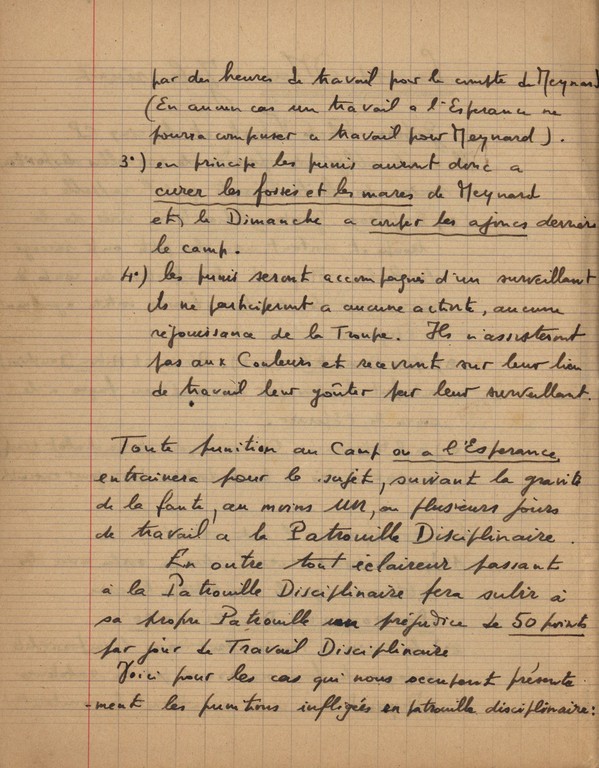 par des heures de travail pour le compte de Meynard
(En aucun cas un travail a l'Esperance ne
pourra compenser ce travail pour Meynard).
3°) en principe les punis auront donc a
curer les fossés et les mares de Meynard
et, le Dimanche a couper les ajoncs derrière
le camp.
4°) les punis seront accompagnés d'un surveillant
ils ne participeront a aucune activité, aucune
réjouissance de la Troupe. Ils n'assisteront
pas aux Couleurs et recevront sur leur lieu
de travail leur goûter par leur surveillant.
Toute punition au Camp ou a l'Esperance
entrainera pour le sujet, suivant la gravité
de la faute, au moins UN, ou plusieurs jours
de travail a la Patrouille Disciplinaire.
En outre tout éclaireur passant
à la Patrouille Disciplinaire fera subir à
sa propre Patrouille un préjudice de 50 points
par jour de Travail Disciplinaire
Voici pour les cas qui nous occupent présente
-ment les punitions infligées en patrouille disciplinaire: